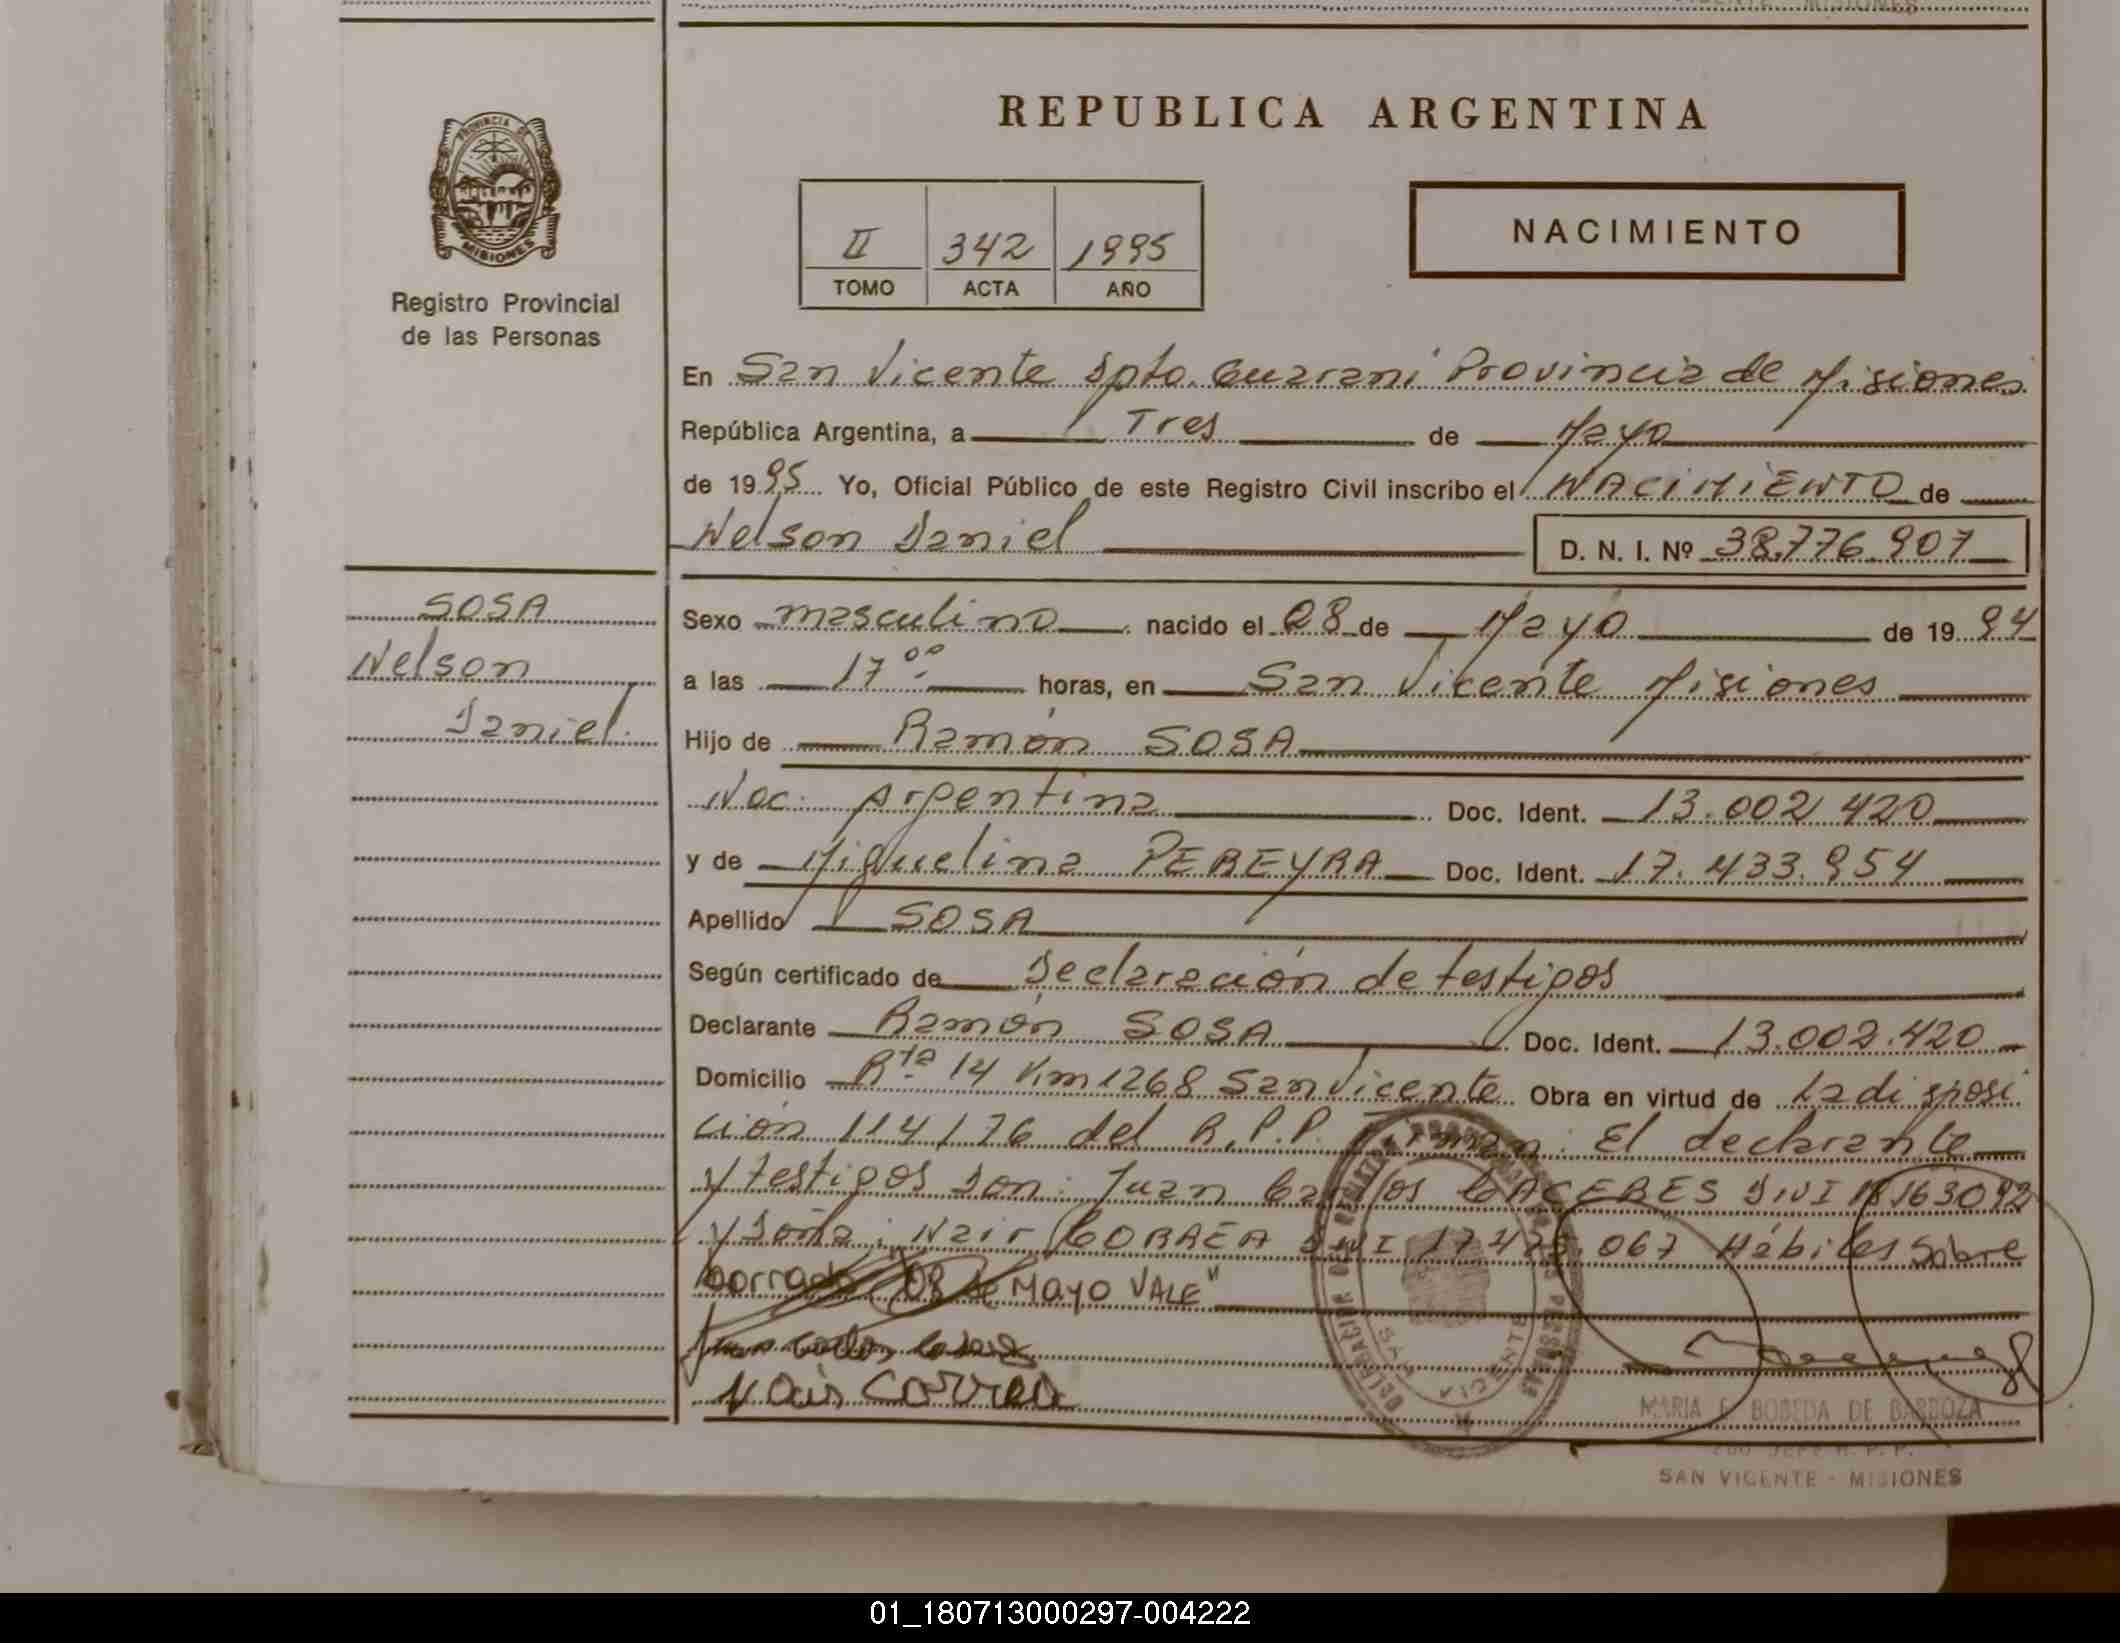 REPUBLICA ARGENTINA
PROVINCIA DE
MISIONES
Registro Provincial
de las Personas
II 342 1995
TOMO ACTA AÑO
NACIMIENTO
En San Vicente Dpto. Guaraní Provincia de Misiones
República Argentina, a Tres de Mayo
de 1995 Yo, Oficial Público de este Registro Civil inscribo el NACIMIENTO de
Nelson Daniel D. N. I. Nº 38.776.907
SOSA
Nelson
Daniel.
Sexo masculino nacido el 08 de Mayo de 1994
a las 17⁰⁰ horas, en San Vicente Misiones
Hijo de Ramón SOSA
Nac. Argentina Doc. Ident. 13.002.420
y de Miguelina PEREYRA Doc. Ident. 17.433.954
Apellido SOSA
Según certificado de Declaración de testigos
Declarante Ramón SOSA Doc. Ident. 13.002.420
Domicilio Rta 14 Km 1268 San Vicente Obra en virtud de La disposi
ción 114/76 del R.P.P. Firman: El declarante
y testigos Don: Juan Carlos CACERES DNI
y Doña: Nair CORREA DNI 067 Hábiles Sobre
borrado "08 de Mayo VALE"
Nair Correa
MARIA E BOBEDA DE BARBOZA
JEFE R. P. P.
SAN VICENTE - MISIONES
SAN VICENTE
01_180713000297-004222